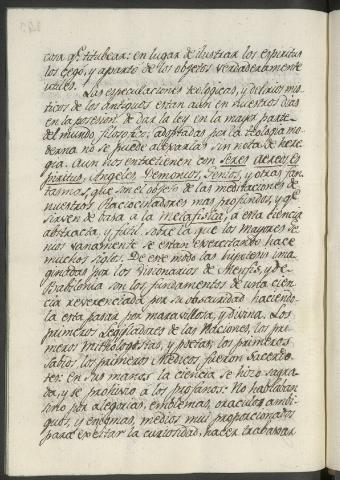 cosa qᵉ titubear: en lugar de ilustrar los espiritus
los cegó, y apartó de los objetos verdaderamente
utiles.
Las especulaciones teologicas, y delirios mis-
ticos de los antiguos estan aun en nuestros dias
en la posesion de dar la ley en la mayor parte
del mundo filosofico; adoptadas por la teologia mo-
derna no se puede alexarlas sin nota de here-
gia. Aun nos entretienen con Seres aereos es-
piritus, Angeles, Demonios, Genios, y otras fan-
tasmas, que son el objeto de las meditaciones de
nuestros Raciocinadores mas profundos, y qᵉ
sirven de basa a la metafisica, a esta ciencia
abstracta, y futil, sobre la que los mayores ge-
nios vanamente se estan exercitando hace
muchos siglos. De este modo las hypoteses ima-
ginadas por los Visionarios de Menfis, y de
Babilonia son los fundamentos de una cien-
cia reverenciada por su obscuridad, haciendo-
la esta pasar por maravillosa, y divina. Los
primeros Legisladores de las Naciones, los pri-
meros Mithologistas, y poetas, los primeros
Sabios, los primeros Medicos fueron Sacerdo-
tes: En sus manos la ciencia se hizo sagra-
da, y se prohivio a los profanos: No hablaban
sino por alegorias, emblemas, oraculos ambi-
guos, y enigmas, medios mui proporcionados
para exitar la curiosidad, hacer trabaxar